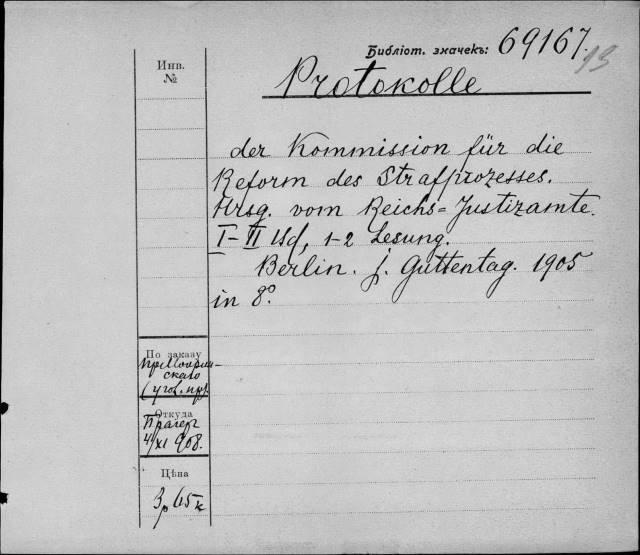 Библіот. значекъ: 69167.
13
Инв.
№
Protokolle
der Kommission für die
Reform des Strafprozesses.
Hrsg. vom Reichs-Justizamte.
I-II Bd, 1-2 Lesung.
Berlin. J. Guttentag. 1905
in 8º.
По заказу
(угол. пр).
Откуда
Прагер
4/XI 908.
Цѣна
3р 65к